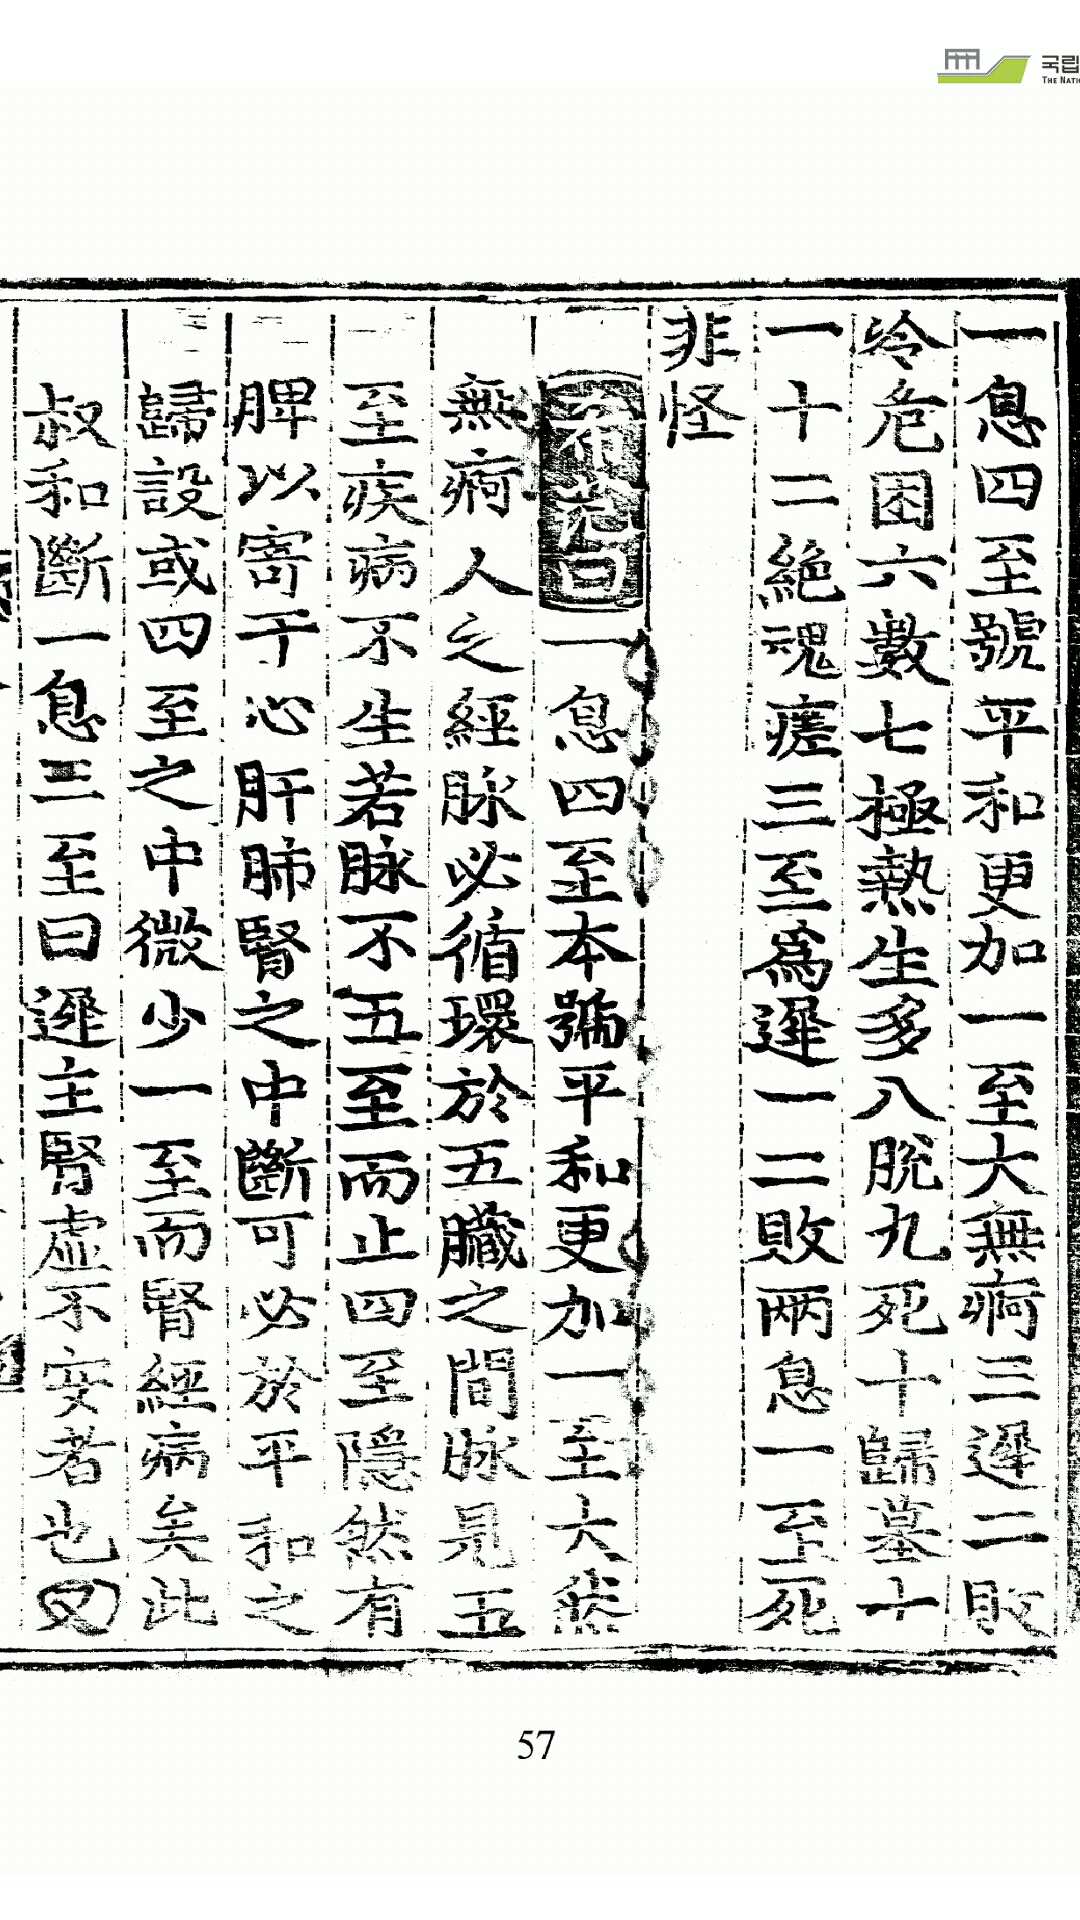 국립
THE NATI
一息四至號平和更加一至大無痾三遲二敗
冷危困六數七極熱生多八脫九死十歸墓十
一十二絶魂瘥三至爲遲一二敗兩息一至死
非怪
希范曰一息四至本號平和更加一至大無
無痾人之經脉必循環於五臟之間脉見五
至疾病不生若脉不五至而止四至隱然有
脾以寄于心肝肺腎之中斷可必於平和之
歸設或四至之中微少一至而腎經病矣此
叔和斷一息三至曰遲主腎虚不安者也又
57